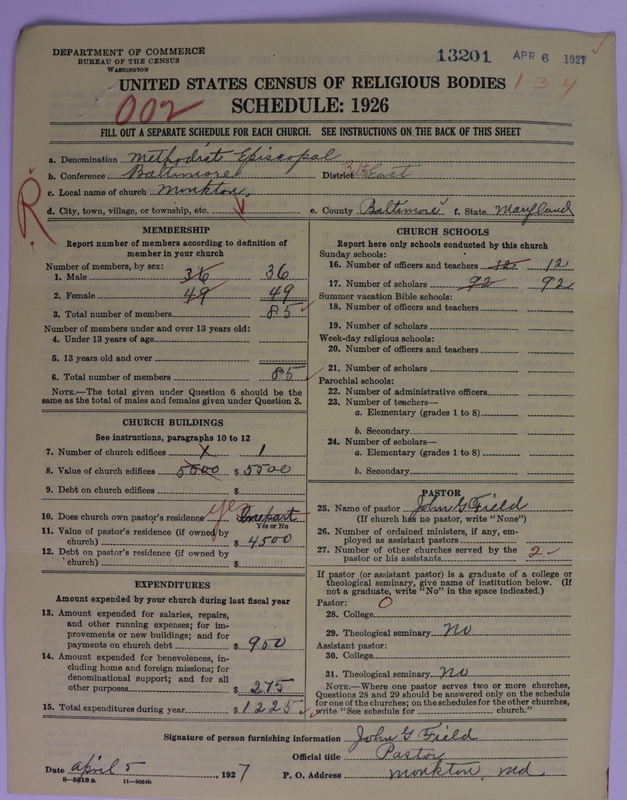 DEPARTMENT OF COMMERCE
BUREAU OF THE CENSUS
WASHINGTON
13201 APR 6 1927
UNITED STATES CENSUS OF RELIGIOUS BODIES 134
002 SCHEDULE: 1926
FILL OUT A SEPARATE SCHEDULE FOR EACH CHURCH. SEE INSTRUCTIONS ON THE BACK OF THIS SHEET
a. Denomination Methodist Episcopal
b. Conference Baltimore District East
c. Local name of church Monkton,
d. City, town, village, or township, etc. e. County Baltimore f. State Maryland
R
MEMBERSHIP
Report number of members according to definition of
member in your church
Number of members, by sex:
1. Male 36 36
2. Female 49 49
3. Total number of members 85
Number of members under and over 13 years old:
4. Under 13 years of age
5. 13 years old and over
6. Total number of members 85
NOTE.—The total given under Question 6 should be
same as the total of males and females given under Question 3.
CHURCH BUILDINGS
See instructions, paragraphs 10 to 12
7. Number of church edifices 1 1
8. Value of church edifices 5500 $ 5500
9. Debt on church edifices $
10. Does church own pastor's residence yes
Yes or No
11. Value of pastor's residence (if owned by
church) $ 4500
12. Debt on pastor's residence (if owned by
church) $
EXPENDITURES
Amount expended by your church during last fiscal year
13. Amount expended for salaries, repairs,
and other running expenses; for im-
provements or new buildings; and for
payments on church debt $ 950
14. Amount expended for benevolences, in-
cluding home and foreign missions; for
denominational support; and for all
other purposes $ 275
15. Total expenditures during year $ 1225
CHURCH SCHOOLS
Report here only schools conducted by this church
Sunday schools:
16. Number of officers and teachers 12 12
17. Number of scholars 92 92
Summer vacation Bible schools:
18. Number of officers and teachers
19. Number of scholars
Week-day religious schools:
20. Number of officers and teachers
21. Number of scholars
Parochial schools:
22. Number of administrative officers
23. Number of teachers—
a. Elementary (grades 1 to 8)
b. Secondary
24. Number of scholars—
a. Elementary (grades 1 to 8)
b. Secondary
PASTOR
25. Name of pastor John G Field
(If church has no pastor, write "None")
26. Number of ordained ministers, if any, em-
ployed as assistant pastors
27. Number of other churches served by the
pastor or his assistants 2
If pastor (or assistant pastor) is a graduate of a college or
theological seminary, give name of institution below. (If
not a graduate, write "No" in the space indicated.)
Pastor: O
28. College
29. Theological seminary No
Assistant pastor:
30. College
31. Theological seminary No
NOTE.—Where one pastor serves two or more churches,
Questions 28 and 29 should be answered only on the schedule
for one of the churches; on the schedules for the other churches,
write "See schedule for church."
Signature of person furnishing information John G Field
Official title Pastor
Date April 5, 1927 P. O. Address Monkton, Md
8—5518a 11—9054b